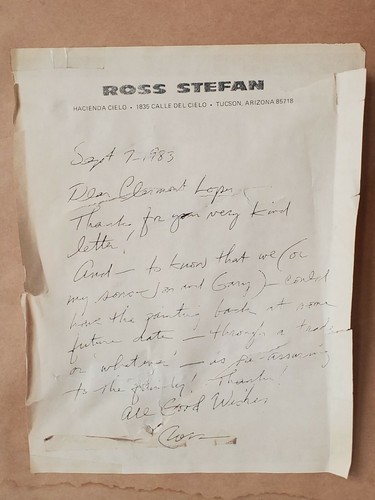 ROSS STEFAN
HACIENDA CIELO • 1835 CALLE DEL CIELO • TUCSON, ARIZONA 85718
Sept 7-1983
Dear Clermont
Thanks for your very kind
letter!
And — to know that we (or
my sons — Jon and Gary) — could
have the painting back at some
future date — through a trade
or 'whatever' — is re-assuring
to the family! Thanks!
All Good Wishes
Ross